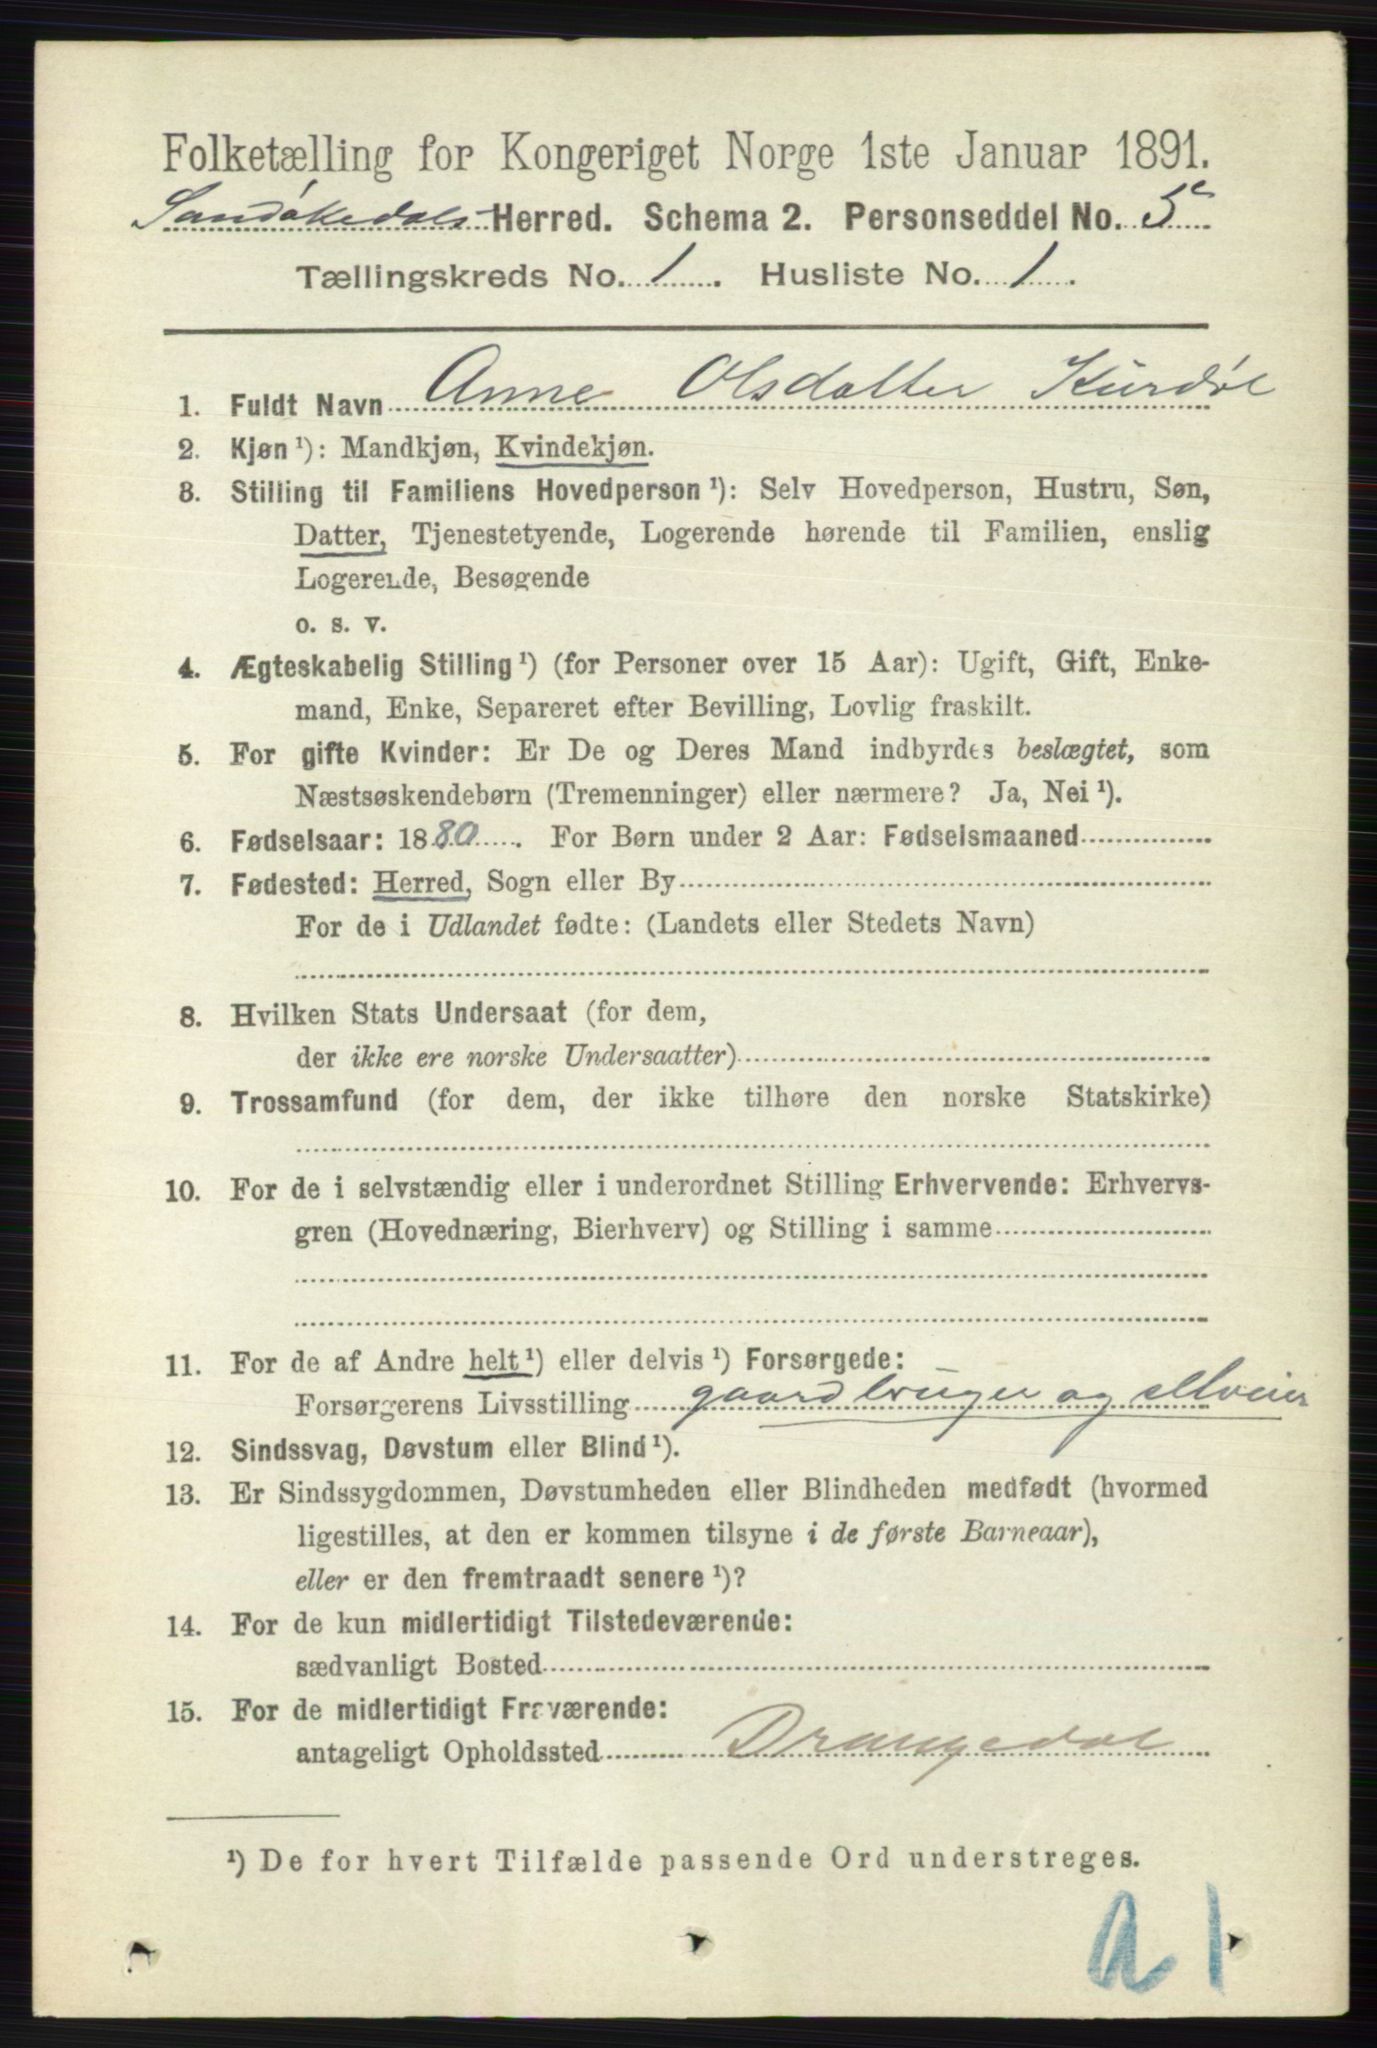 Folketælling for Kongeriget Norge 1ste Januar 1891.
Sandøkedals Herred. Schema 2. Personseddel No. 5
Tællingskreds No. 1. Husliste No. 1.
1. Fuldt Navn Anne Olsdatter Kurdøl
2. Kjøn ¹): Mandkjøn, Kvindekjøn.
3. Stilling til Familiens Hovedperson ¹): Selv Hovedperson, Hustru, Søn,
Datter, Tjenestetyende, Logerende hørende til Familien, enslig
Logerende, Besøgende
o. s. v.
4. Ægteskabelig Stilling ¹) (for Personer over 15 Aar): Ugift, Gift, Enke-
mand, Enke, Separeret efter Bevilling, Lovlig fraskilt.
5. For gifte Kvinder: Er De og Deres Mand indbyrdes beslægtet, som
Næstsøskendebørn (Tremenninger) eller nærmere? Ja, Nei ¹).
6. Fødselsaar: 1880. For Børn under 2 Aar: Fødselsmaaned
7. Fødested: Herred, Sogn eller By
For de i Udlandet fødte: (Landets eller Stedets Navn)
8. Hvilken Stats Undersaat (for dem,
der ikke ere norske Undersaatter)
9. Trossamfund (for dem, der ikke tilhøre den norske Statskirke)
10. For de i selvstændig eller i underordnet Stilling Erhvervende: Erhvervs-
gren (Hovednæring, Bierhverv) og Stilling i samme
11. For de af Andre helt ¹) eller delvis ¹) Forsørgede:
Forsørgerens Livsstilling gaardbruger og selveier
12. Sindssvag, Døvstum eller Blind ¹).
13. Er Sindssygdommen, Døvstumheden eller Blindheden medfødt (hvormed
ligestilles, at den er kommen tilsyne i de første Barneaar),
eller er den fremtraadt senere ¹)?
14. For de kun midlertidigt Tilstedeværende:
sædvanligt Bosted
15. For de midlertidigt Fraværende:
antageligt Opholdssted Drangedal
¹) De for hvert Tilfælde passende Ord understreges.
a 1